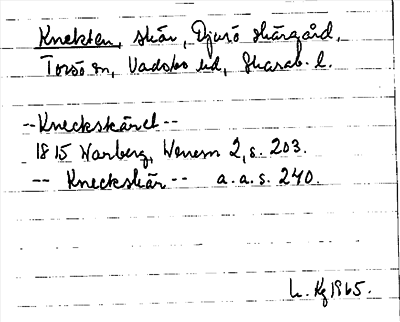 Knekten, skär, Djurö skärgård,
Torsö sn, Vadsbo hd, Skarab. l.
-- Kneckskäret --
1815 Warberg, Wenern 2, s. 203.
-- Kneckskär -- a.a.s. 240.
L. Kg 1965.